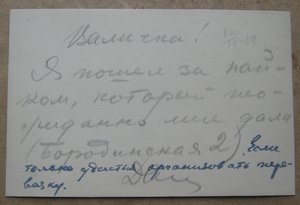 Валичка!
Я пошел за пай-
ком, который нео-
жиданно мне дали
(Бородинская 2) Если
только удастся организовать пере-
возку.